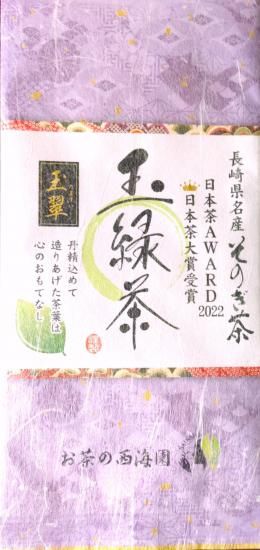 長崎県名産
そのぎ茶
日本茶AWARD2022
日本茶大賞受賞
玉緑茶
玉翠
丹精込めて
造りあげた茶葉は
心のおもてなし
お茶の西海園